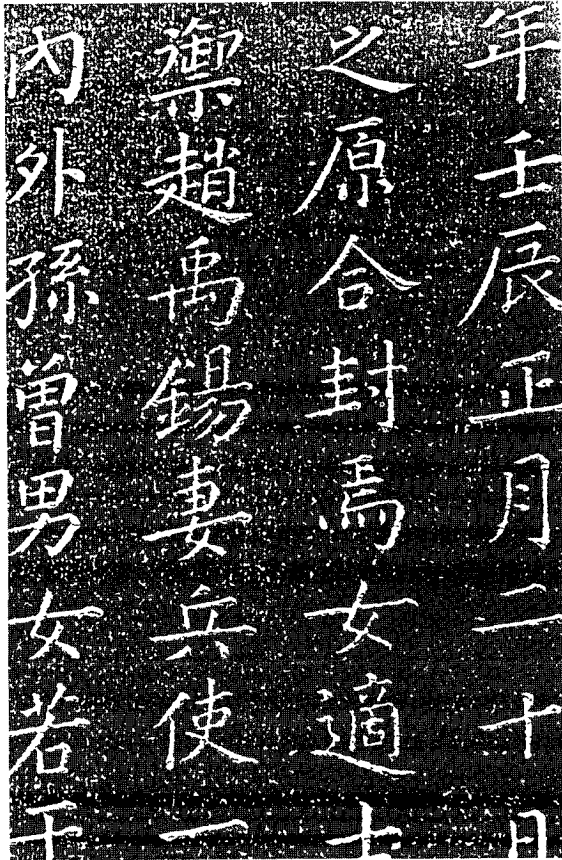 年壬辰正月二十日
之原合封焉女適士
禦趙禹錫妻兵使一
內外孫曾男女若干